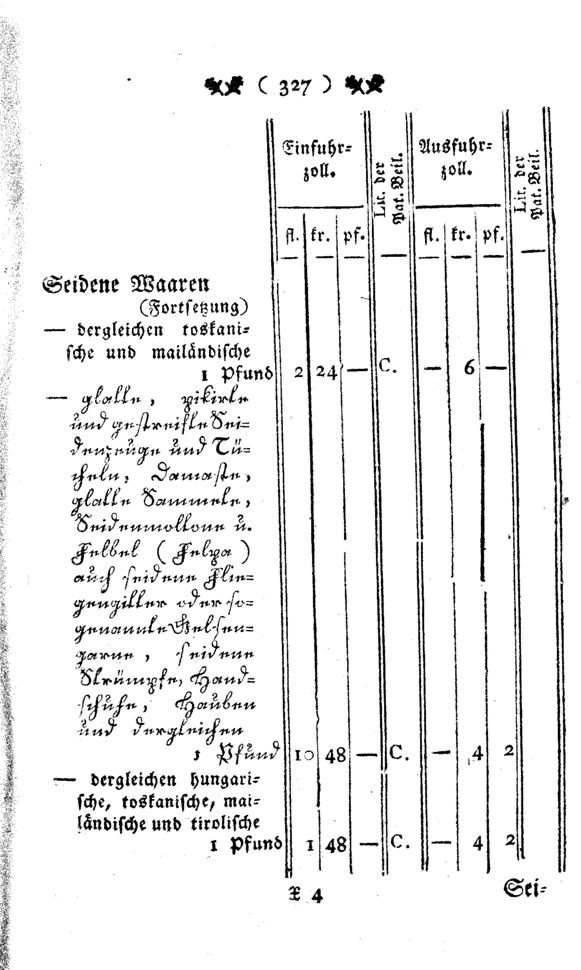 ( 327 )
Einfuhr= Lit. der Pat. Beil. Ausfuhr= Lit. der Pat. Beil.
zoll. zoll.
fl. kr. pf. — fl. kr. pf. —
Seidene Waaren
(Fortsetzung)
— dergleichen toskani=
sche und mailändische
1 Pfund 2 24 — C. — 6 —
— glatte, pikirte
und gestreifte Sei=
denzeuge und Tü=
cheln, Damaste,
glatte Sammete,
Seidenmoltone u.
Felbel (Felpa)
auch seidene Flie=
gengitter oder so=
genannte Gelsen=
garne, seidene
Strümpfe, Hand=
schuhe, Hauben
und dergleichen
1 Pfund 10 48 — C. — 4 2
— dergleichen hungari=
sche, toskanische, mai=
ländische und tirolische
1 Pfund 1 48 — C. — 4 2
X 4 Sei=